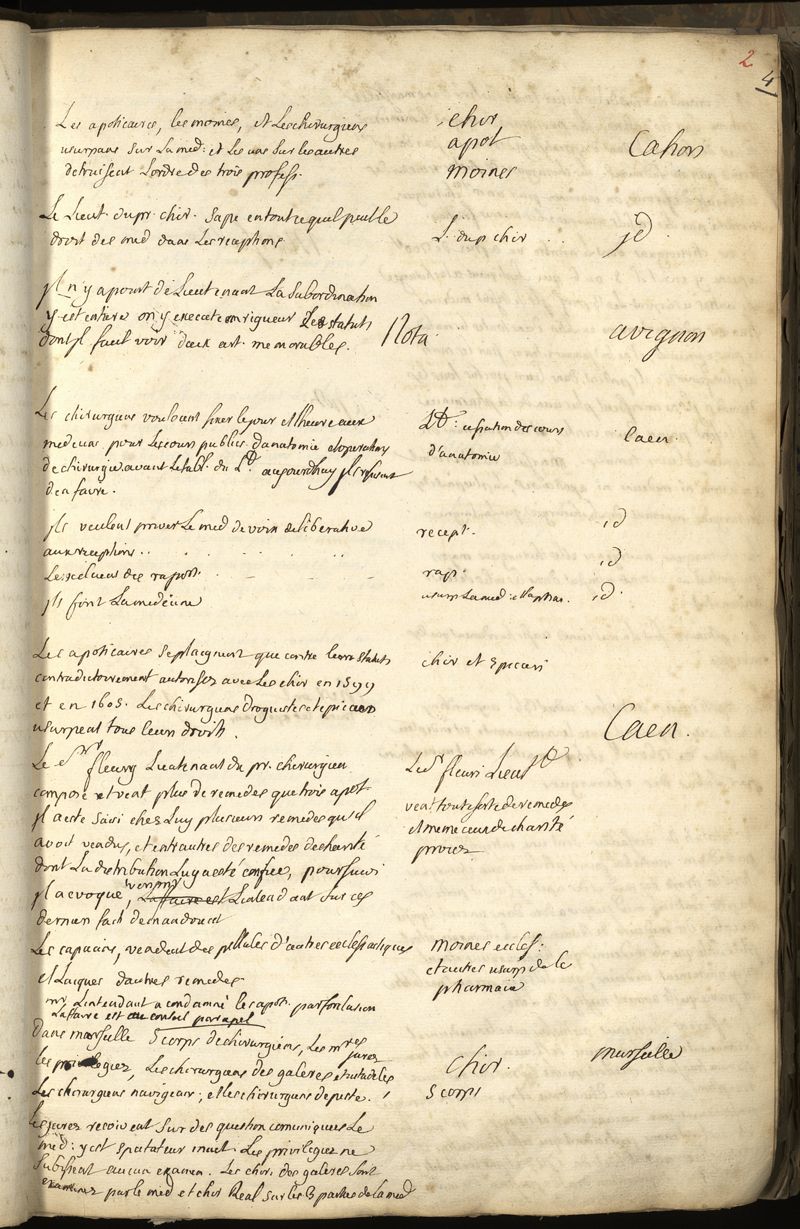 2
4
Les apoticaires, les moines, et les chirurgiens
usurpans sur la med: et les uns sur les autres
detruisent l'ordre des trois profess.
chir
apot
moines
Cahors
Le Lieut. du pr chir. sape en tout ce qu'il peut le
droit des med dans les receptions
L. du p chir . .
id
il n'y a point de Lieutenant la subordination
y est entiere on y execute en rigueur les statuts
dont il faut voir deux art. memorables.
Nota
avignon
Les chirurgiens vouloient fixer le jour et l'heure aux
medecins pour les cours publics d'anatomie et operations
de chirurgie avant l'etabl. du Lt aujourdhuy ils refusent
d'en faire.
Lt: cessation des cours
d'anatomie
Caen
ils veulent priver le med de voix deliberative
aux receptions . . . . .
recept.
id
Les des raport
rap.
id
ils font la medecine
usurp la med: et la phar.
id.
Les apoticaires se plaignent que contre leurs statuts
contradictoirement autorisez avec les chir en 1599
et en 1605. Les chirurgiens droguistes et epiciers
usurpent tous leurs droits.
chir et epiciers
Caen.
Le sr fleury Lieutenant du pr. chirurgien
compose et vent plus de remedes que trois apot.
il a este saisi chez luy plusieurs remedes qu'il
avoit vendus, et entr'autres des remedes de charité
dont la distribution luy a esté confiee, poursuivi
il a evoqué, l'affaire est L'intendant sur ces
dernier fait
Le sr fleuri Lieut
vent toute sorte de remedes
et meme ceux de charité
procez
Les capucins, vendent des pillules d'autres ecclesiastiques
et laiques d'autres remedes
moines eccles:
et autres usurp de la
pharmacie
mr L'intendant a condamné les apot. par son
L'affaire est au conseil par apel
dans marseille 5 corps de chirurgiens, les mres jurez
les privilegiez, Les chirurgiens des galeres
Les chirurgiens navigeans; et les chirurgiens de peste.
chir.
5 corps
marseille
les jurez recoivent sur des question comuniquees Le
med: y est spectateur muet. Les privilegiez ne
subissent aucun examen. Les chir. des galeres sont
examinez par le med et chir Real sur les 3 parties de la med